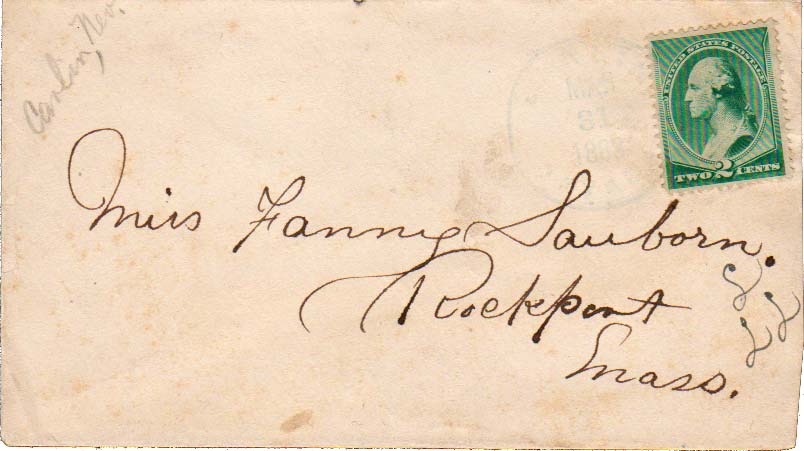 Carlin, Nev.
UNITED STATES POSTAGE
TWO 2 CENTS
31
Miss Fanny Sanborn.
Rockport
Mass.